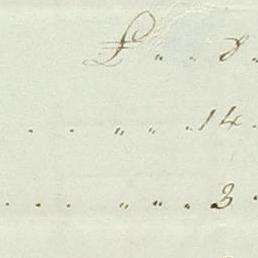 £ „ . 8 .
. . „ „ . 14 .
. . . „ „ . 3 .